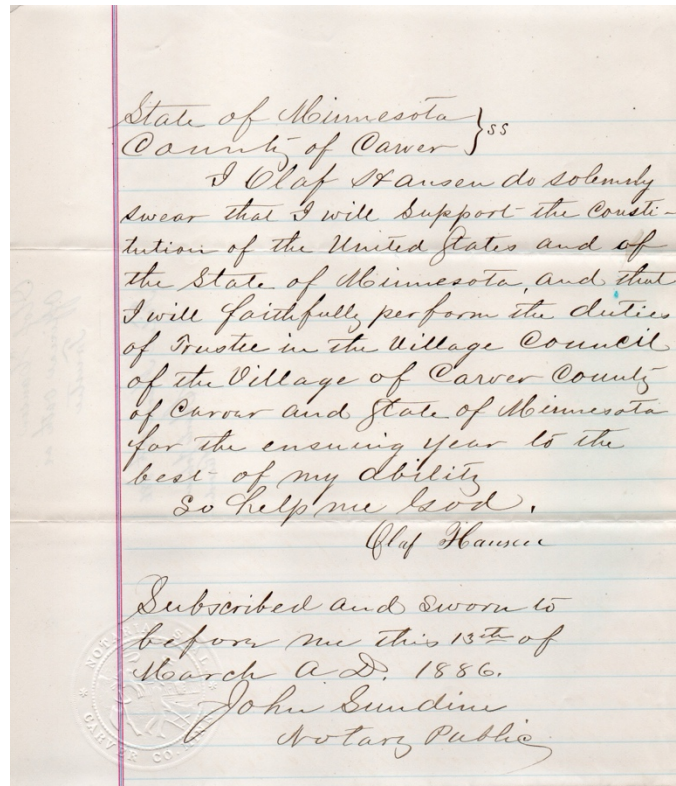 State of Minnesota } ss
County of Carver
I Olaf Hansen do solemnly
swear that I will Support the Consti-
tution of the United States and of
the State of Minnesota, and that
I will faithfully perform the duties
of Trustee in the Village Council
of the Village of Carver County
of Carver and State of Minnesota
for the ensuing year to the
best of my ability
So help me God.
Olaf Hansen
Subscribed and Sworn to
before me this 13th of
March A.D. 1886.
John Sundine
Notary Public
NOTARIAL SEAL
CARVER CO.